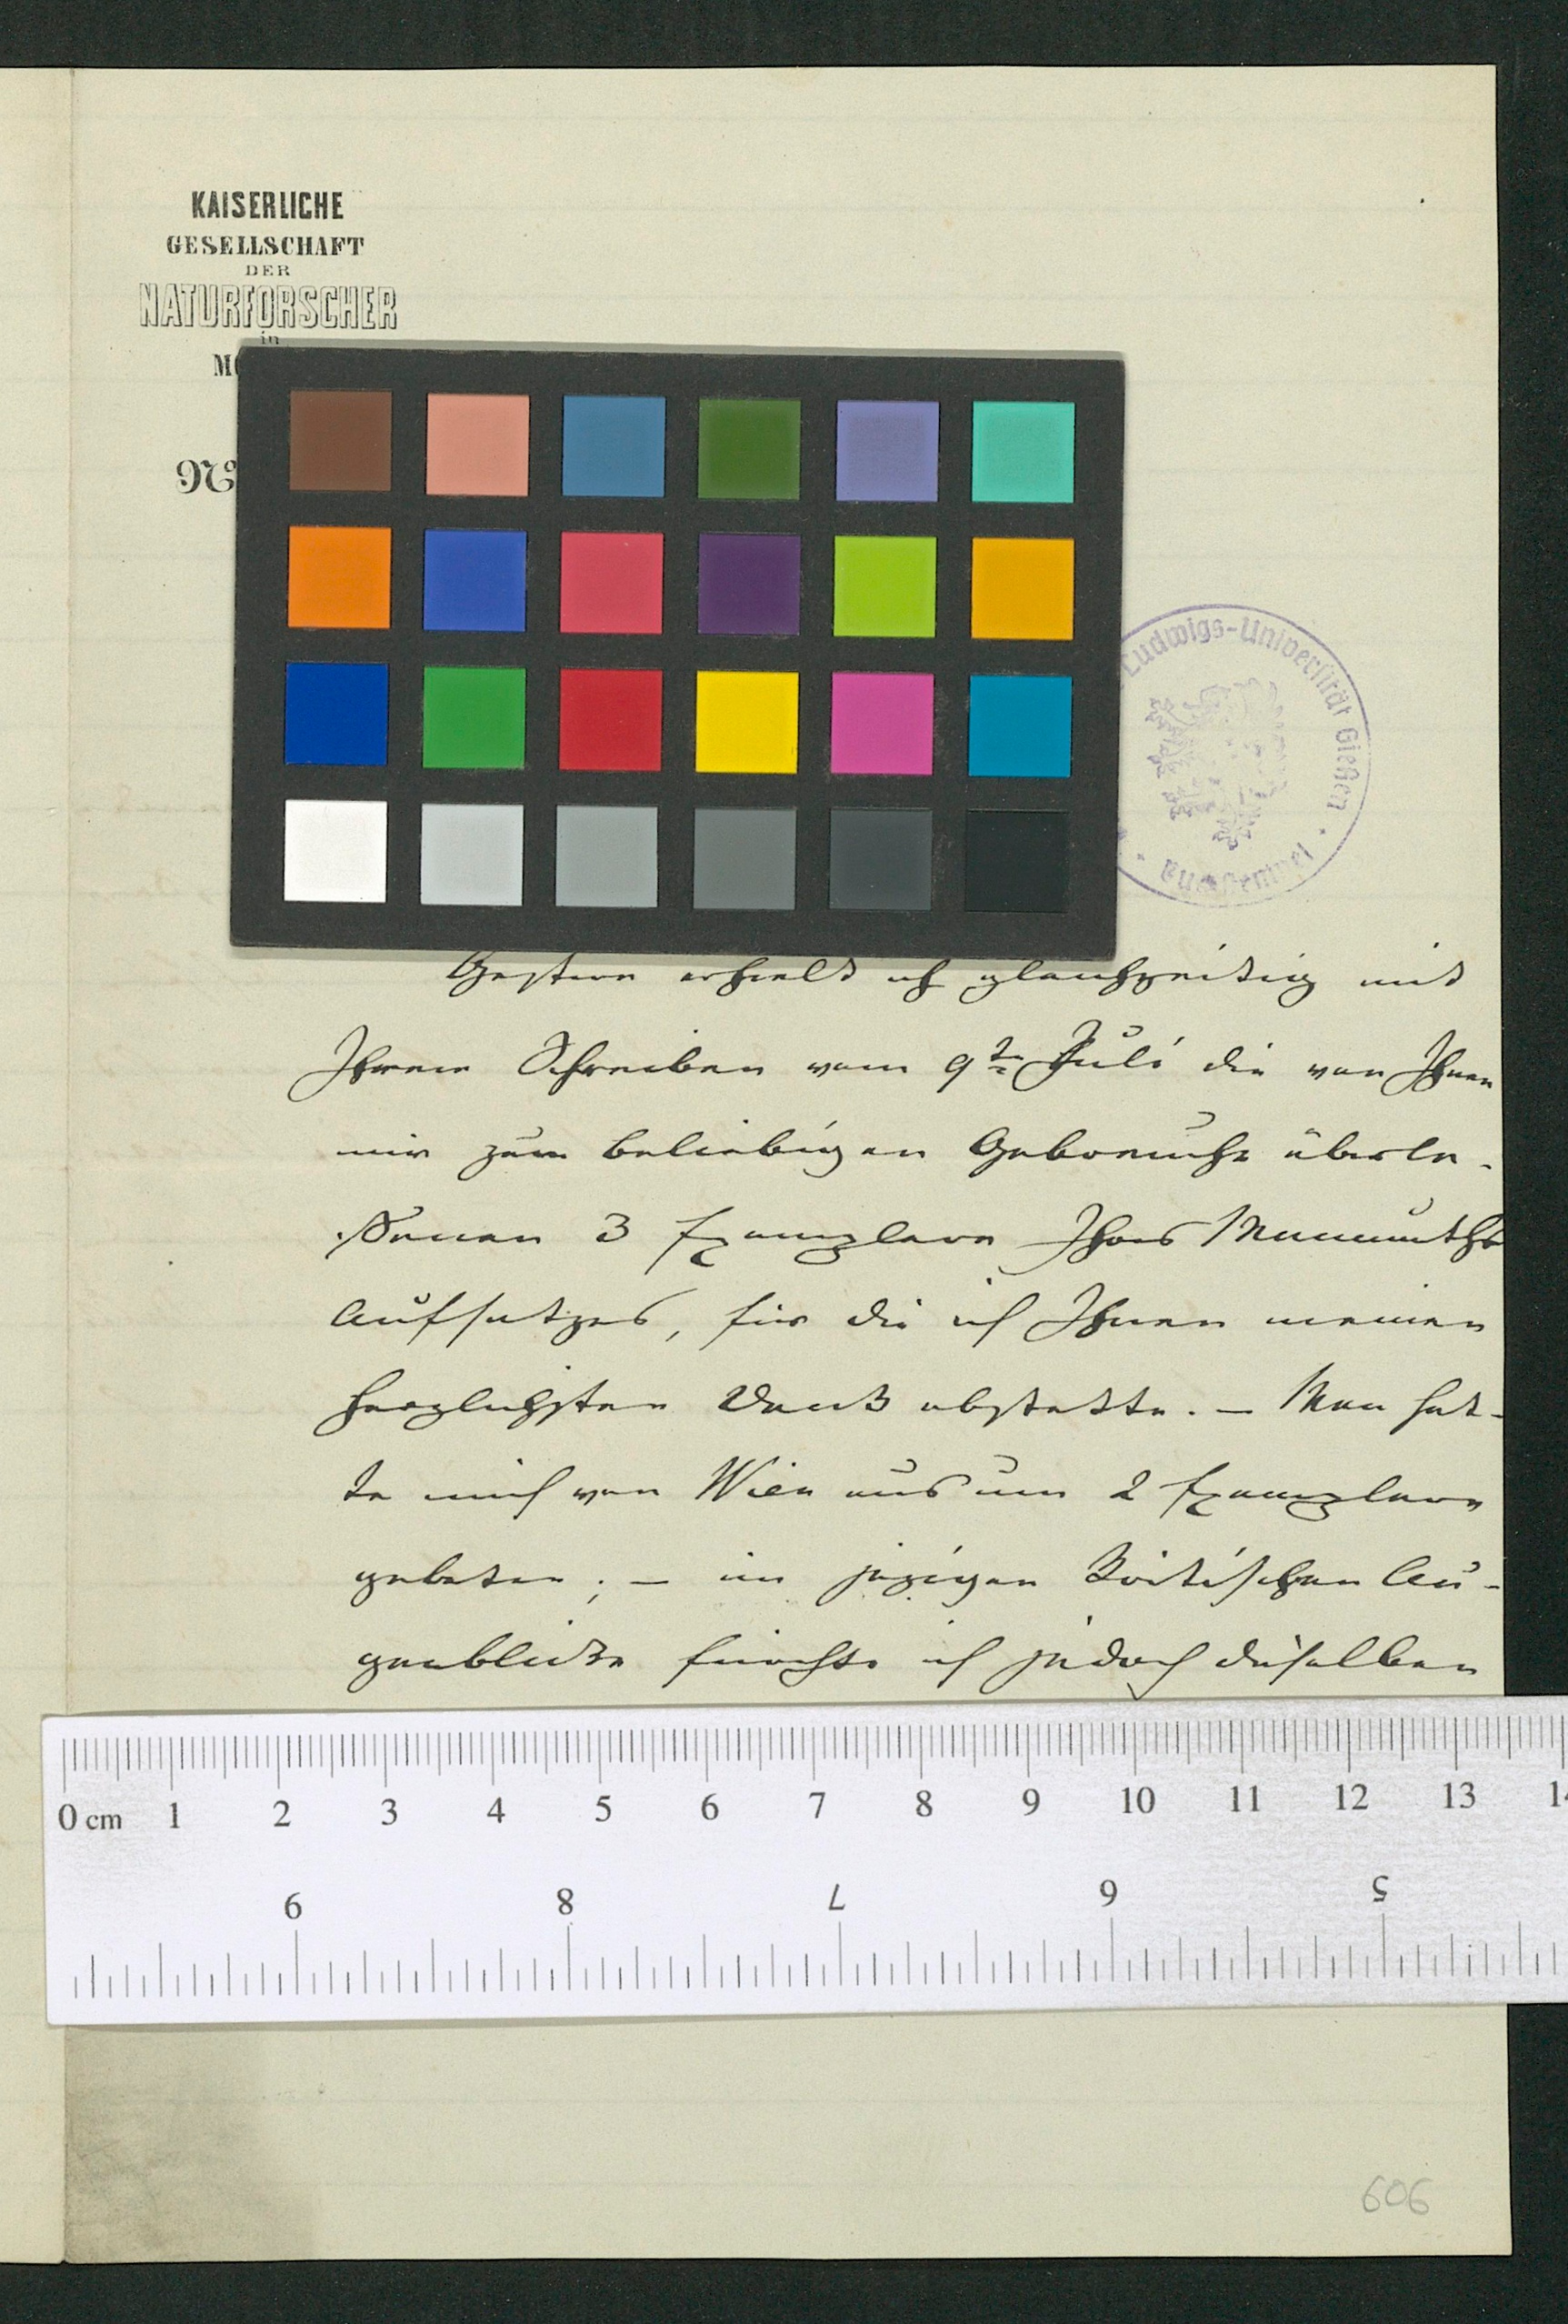 KAISERLICHE
GESELLSCHAFT
DER
NATURFORSCHER
in
M
№
Ludwigs-Universität Gießen
Gestern erhielt ich gleichzeitig mit
Ihrem Schreiben vom 9ten Juli die von Ihnen
mir zum beliebigen Gebrauche überla-
ssenen 3 Exemplare Ihres Mammuths
Aufsatzes, für die ich Ihnen meinen
herzlichsten Dank abstatte. – Man hat-
te mich von Wien aus um 2 Exemplare
gebeten; – im jezigen kritischen Au-
genblicke fürchte ich jedoch dieselben
0 cm 1 2 3 4 5 6 7 8 9 10 11 12 13 14
9 8 7 6 5
606